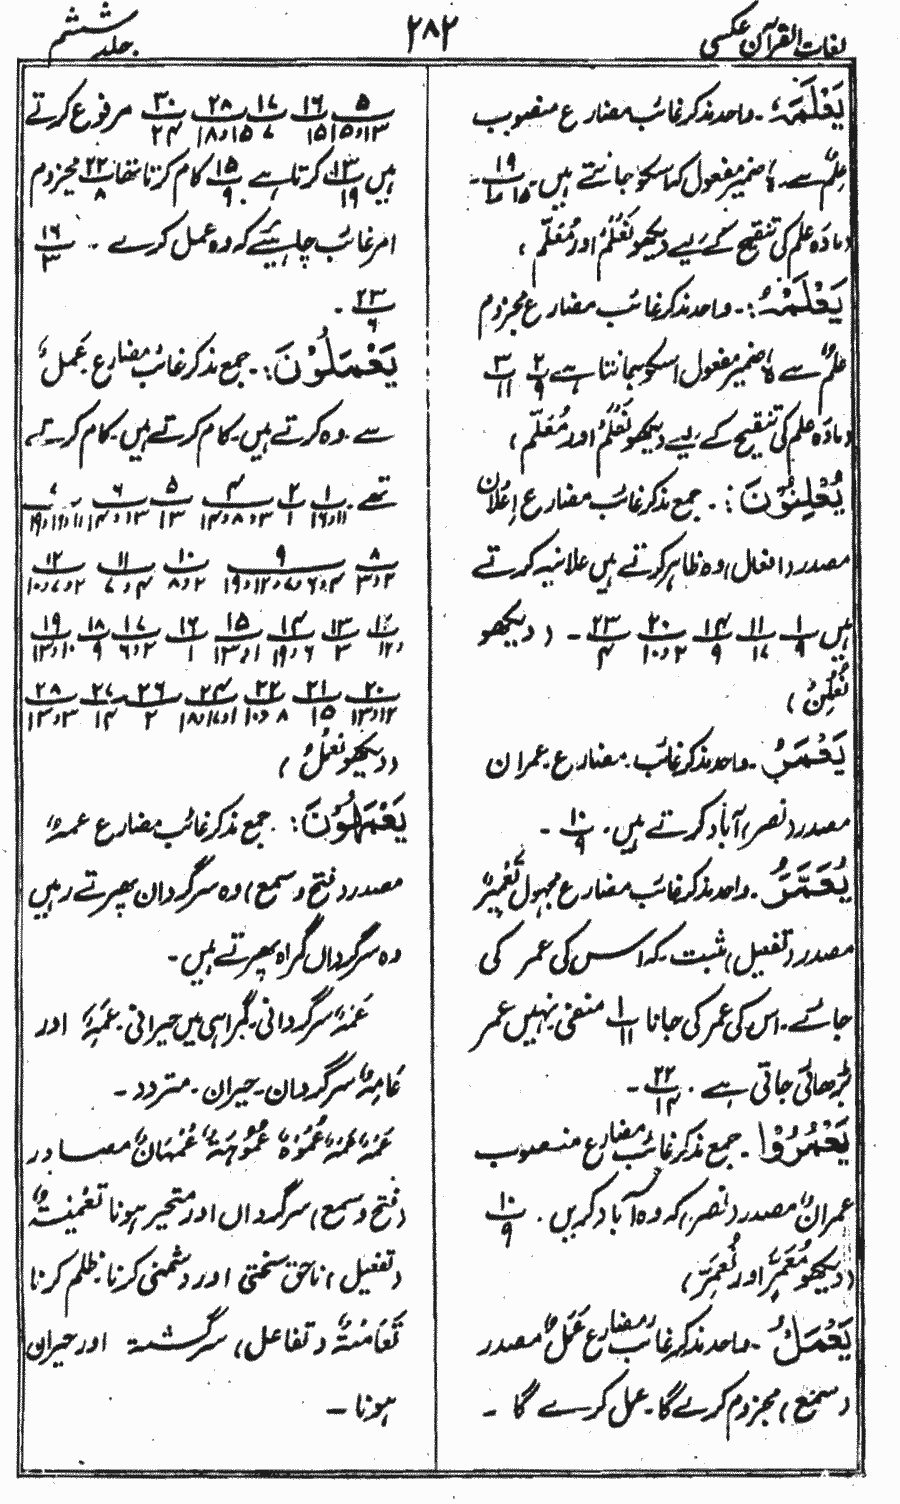 لغات القرآن عکسی
۲۸۲
جلد ششم
یَعْلَمَہٗ:- واحد مذکر غائب مضارع منصوب
عِلْمٌ سے۔ ہٗ ضمیر مفعول کہ اسکو جانتے ہیں۔ ۱۹/۱۵
(مادّہ علم کی تنقیح کے لیے دیکھو نَعْلَمُ اور مُعَلَّمٌ)
یَعْلَمْہُ:- واحد مذکر غائب مضارع مجزوم
عِلْمٌ سے ہٗ ضمیر مفعول اسکو جانتا ہے ۲/۹ ۳/۱۱
(مادّہ علم کی تنقیح کے لیے دیکھو نَعْلَمُ اور مُعَلَّمٌ)
یُعْلِنُوْنَ:- جمع مذکر غائب مضارع اِعْلَانٌ
مصدر (افعال) وہ ظاہر کرتے ہیں علانیہ کرتے
ہیں ۱/۹ ۱۱/۱۷ ۱۴/۹ ۲۰/۲و۱۰ ۲۳/۴ - (دیکھو
نُعْلِنُ)
یَعْمُرُ:- واحد مذکر غائب مضارع عمران
مصدر (نصر) آباد کرتے ہیں۔ ۱۰/۹ -
یُعَمَّرُ:- واحد مذکر غائب مضارع مجہول تَعْمِیْرٌ
مصدر (تفعیل) مثبت۔ کہ اس کی عمر کی
جائے۔ اس کی عمر کی جانا ۱/۱۱ منفی۔ نہیں عمر
بڑھائی جاتی ہے۔ ۲۲/۱۴ -
یَعْمُرُوْا:- جمع مذکر غائب مضارع منصوب
عمران مصدر (نصر) کہ وہ آباد کریں۔ ۱۰/۹
(دیکھو مُعَمَّرٍ اور نُعَمِّرْ)
یَعْمَلْ:- واحد مذکر غائب مضارع عَمَلٌ مصدر
(سمع) مجزوم کرے گا۔ عمل کرے گا۔
۵/۱۳و۱۵ ۱۶/۱۵ ۱۷/۷ ۲۸/۱۵و۱۸ ۳۰/۲۴ مرفوع کرتے
ہیں ۱۳/۱۹ کرتا ہے ۱۵/۹ کام کرتا تھا ۲۲/۸ مجزوم
امر غائب چاہیئے کہ وہ عمل کرے - ۱۶/۳
۲۳/۶ -
یَعْمَلُوْنَ:- جمع مذکر غائب مضارع عَمَلٌ
سے۔ وہ کرتے ہیں۔ کام کرتے ہیں۔ کام کرتے
تھے ۱/۱۱و۱۶ ۲/۱ ۴/۳و۸و۱۴ ۵/۱۳ ۶/۱۳و۱۴ ۷/۱۱و۱۶و۱۹
۸/۲و۳ ۹/۴و۶و۷و۱۲و۱۹ ۱۰/۲و۸ ۱۱/۴و۷ ۱۲/۲و۷و۱۰
۱۲ ۱۳/۳ ۱۴/۶و۱۹ ۱۵/۱و۱۳ ۱۶/۱ ۱۷/۲و۶ ۱۸/۹ ۱۹/۱۰و۱۳
۲۰/۱۲و۱۳ ۲۱/۱۵ ۲۲/۸و۱۰ ۲۴/۱و۱۷و۱۸ ۲۶/۲ ۲۷/۱۴ ۲۸/۳و۱۳
(دیکھو نَعْمَلُ)
یَعْمَہُوْنَ:- جمع مذکر غائب مضارع عمہٌ
مصدر (فتح و سمع) وہ سرگردان پھرتے رہیں
وہ سرگرداں گمراہ پھرتے ہیں۔
عَمَہٌ سرگردانی۔ گمراہی میں حیرانی۔ عَمِہٌ اور
عَامِہٌ سرگردان۔ حیران۔ متردد۔
عَمَہٌ عَمَہٌ عُمُوْہٌ عُمُوْہَۃٌ عَمَہَانٌ مصادر
(فتح و سمع) سرگرداں اور متحیر ہونا تَعْمِیْہٌ
(تفعیل) ناحق سختی اور دشمنی کرنا۔ ظلم کرنا
تَعَامُہٌ (تفاعل) سرگشتہ اور حیران
ہونا -